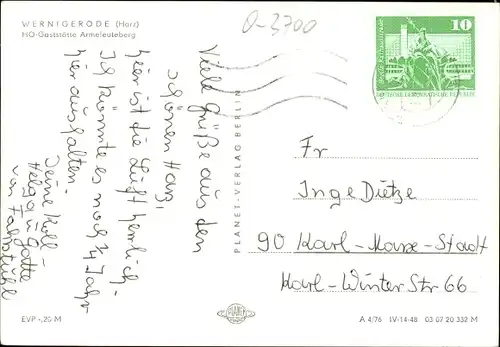 WERNIGERODE (Harz)
HO-Gaststätte Armeleuteberg
0-3700
10
DEUTSCHE DEMOKRATISCHE REPUBLIK
Viele Grüße aus den
schönen Harz,
hier ist die Luft herrlich
Ich könnte es noch ¼ Jahr
hier aushalten.
Deine Koll-
Helga u. Gatte
PLANET-VERLAG BERLIN
Fr
Inge Dietze
90 Karl-Marx-Stadt
Karl-Winter Str 66
PLANET
EVP -,20 M
A 4/76 IV-14-48 03 07 20 332 M